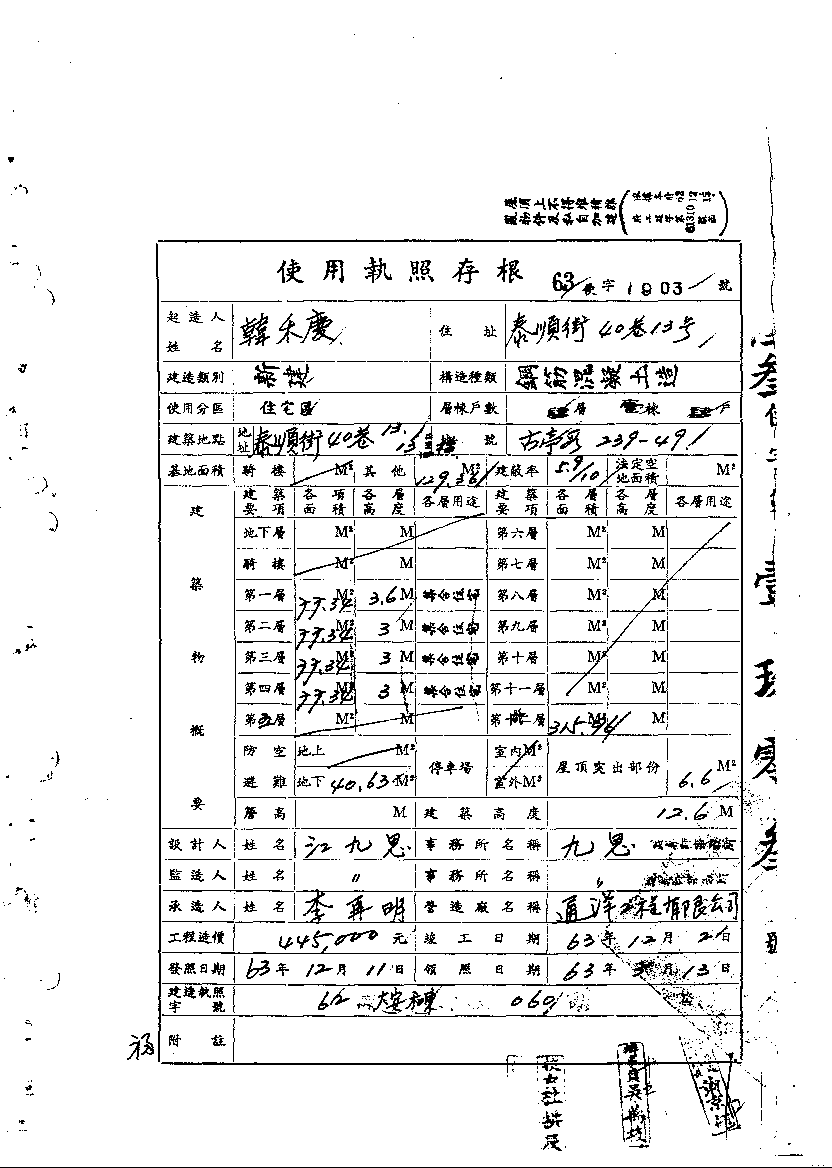 屋頂上不得堆積雜
使用執照存根 63 使字 1903 號
起造人姓名 韓禾慶 住址 泰順街40巷13号
建造類別 新建 構造種類 鋼筋混凝土造
使用分區 住宅區 層棟戶數 層 壹棟 戶
建築地點 地址 泰順街40巷13.1 號 古亭 239-49.1
基地面積 騎樓 M² 其他 129.36 M² 建蔽率 5.9/10 法定空地面積 M²
建築物概要
建築要項 各項面積 各層高度 各層用途 建築要項 各層面積 各層高度 各層用途
地下層 M² M 第六層 M² M
騎樓 M² M 第七層 M² M
第一層 77.34 M² 3.6 M 集合住宅 第八層 M² M
第二層 77.34 M² 3 M 集合住宅 第九層 M² M
第三層 77.34 M² 3 M 集合住宅 第十層 M² M
第四層 77.34 M² 3 M 集合住宅 第十一層 M² M
第五層 M² M 第 層 315.96 M² M
防空 地上 M² 停車場 室內M² 屋頂突出部份 6.6 M²
避難 地下 40.63 M² 室外M²
層高 M 建築高度 12.6 M
設計人 姓名 江九思 事務所名稱 九思
監造人 姓名 〃 事務所名稱 〃
承造人 姓名 李再明 營造廠名稱 通洋工程有限公司
工程造價 445,000 元 竣工日期 63年12月21日
發照日期 63年12月11日 領照日期 63年 月13日
建造執照字號 62 大安棟 060
附註